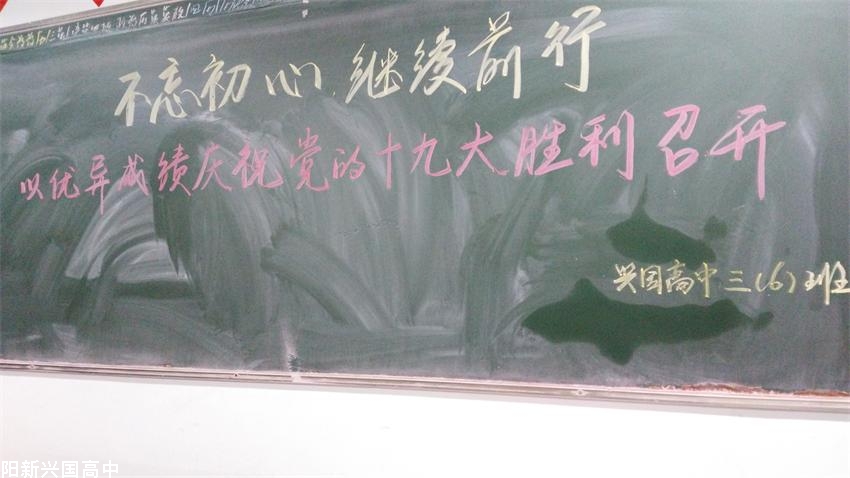 不忘初心 继续前行
以优异成绩庆祝党的十九大胜利召开
兴国高中三(6)班
阳新兴国高中